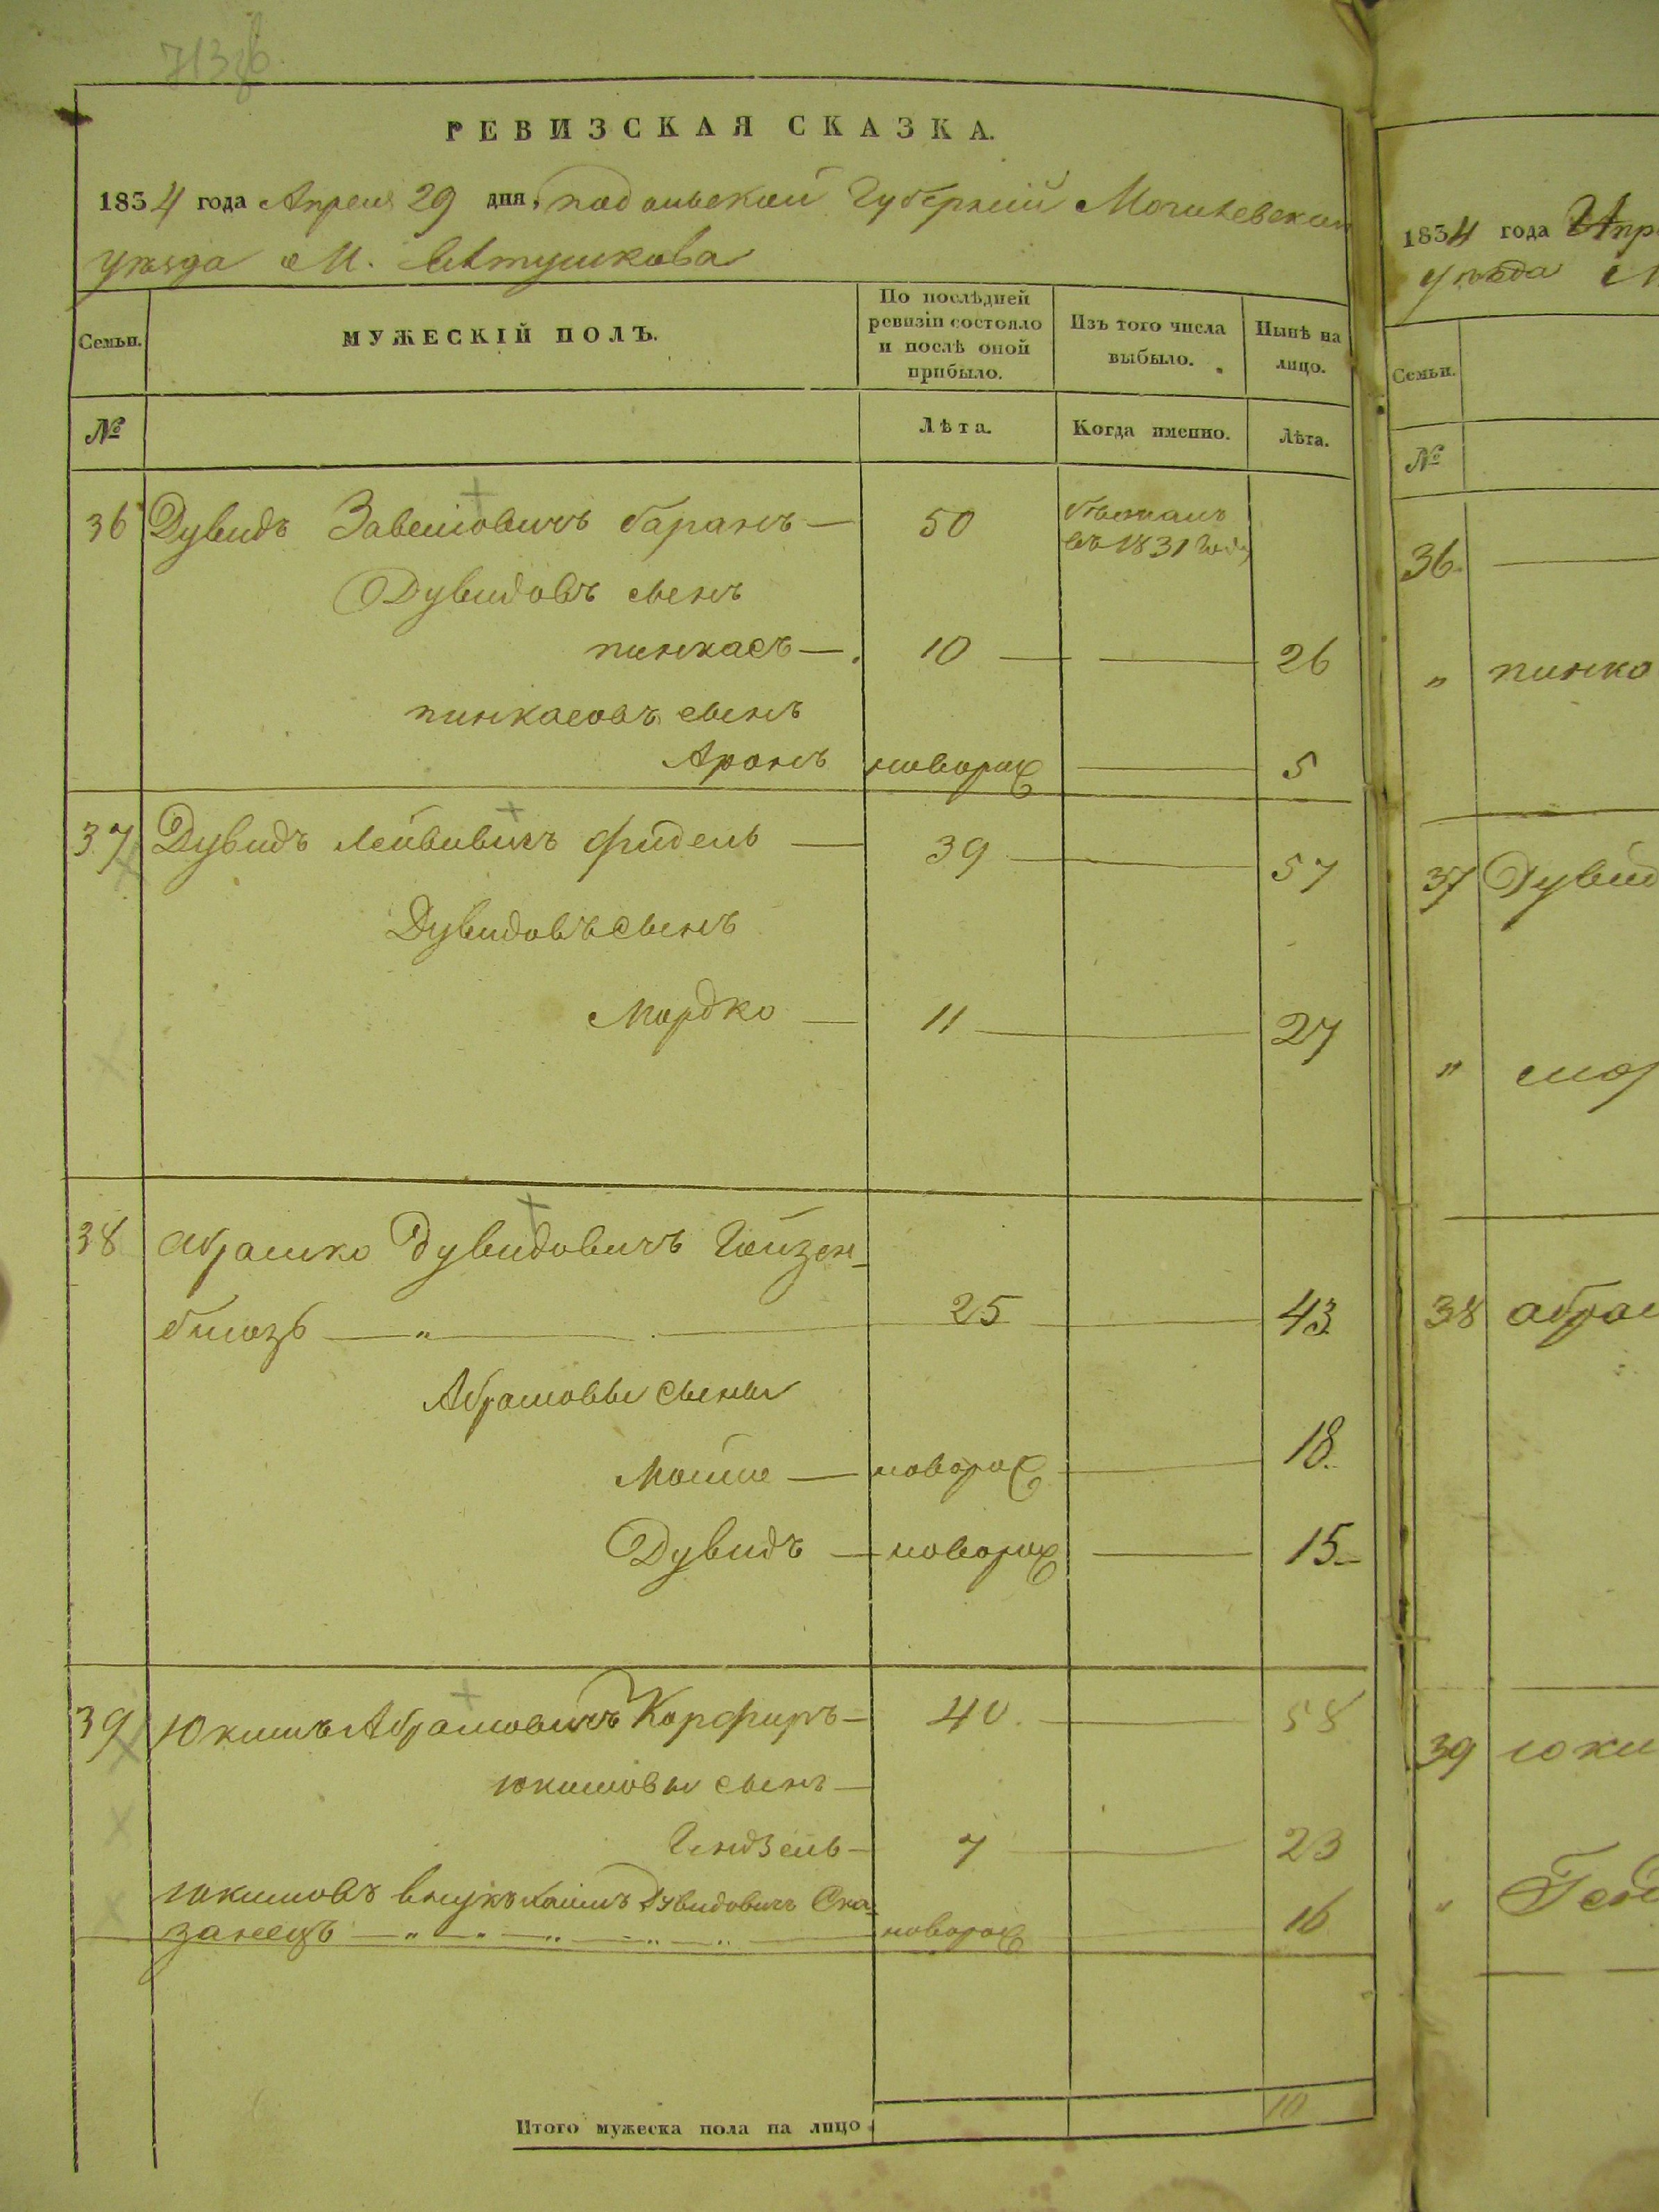 713 об.
РЕВИЗСКАЯ СКАЗКА.
1834 года Апреля 29 дня, подольской Губерний Могилевскаго
уезда М.
Семьи.
МУЖЕСКІЙ ПОЛЪ.
По послѣдней ревизіи состояло и послѣ оной прибыло.
Изъ того числа выбыло.
Нынѣ на лицо.
№
Лѣта.
Когда именно.
Лѣта.
36 Дувидъ баранъ — 50 въ 1831 году
Дувидовъ сынъ
пинкасъ — 10 — — 26
пинкасовъ сынъ
Аронъ новорож — 5
37 Дувидъ Лейбовичъ фидель — 39 — 57
Дувидовъ сынъ
Мордко — 11 — 27
38 абрамко Дувидовичъ
— „ — 25 — 43
Абрамовы сыны
Мошко — новорож — 18.
Дувидъ — новорож — 15 —
39 Юкимъ Абрамовичъ Корфиръ — 40. — 58
юкимовы сынъ —
7 — 23
юкимовъ внукъ Хаимъ Дувидовичъ Ска-
занецъ — „ — „ — „ — „ — „ — новорож — 16
Итого мужеска пола на лицо 10
1834 года Апр
уезда М
Семьи.
№
36. —
„ пинка
37 Дувид
„ мор
38 абрам
39 юки
„